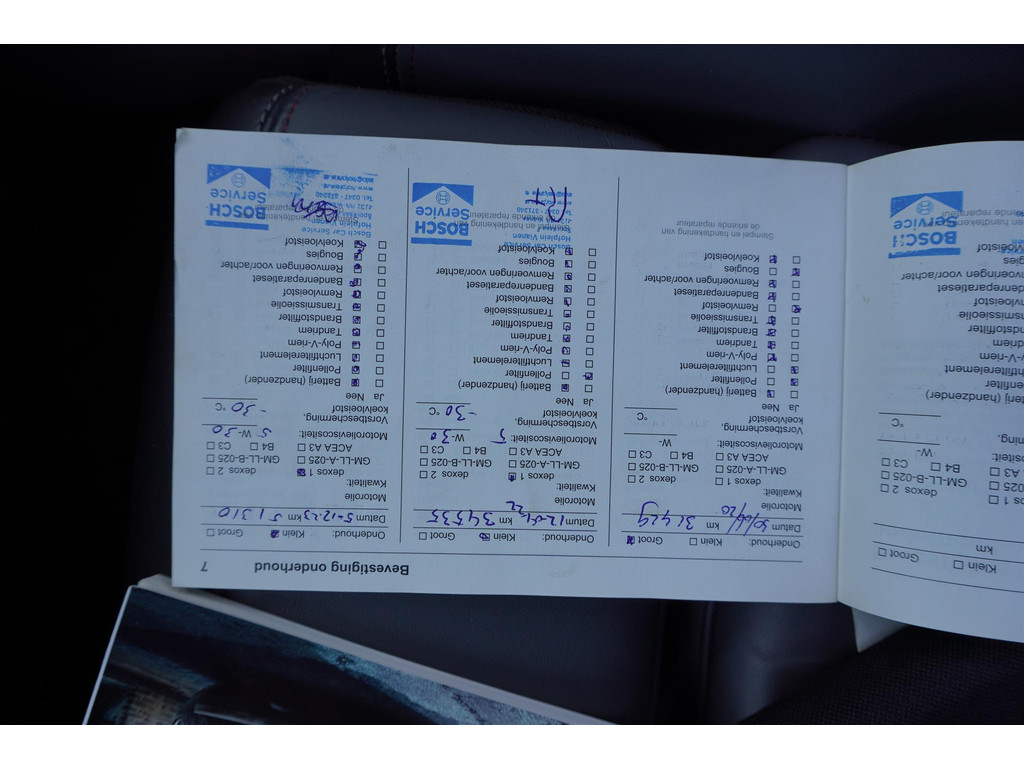 Bevestiging onderhoud 7
Onderhoud: ☐ Klein ☒ Groot
Datum 30/11/20 km 31429
Motorolie
Kwaliteit:
☐ dexos 1 ☐ dexos 2
☐ GM-LL-A-025 ☐ GM-LL-B-025
☐ ACEA A3 ☐ B4 ☐ C3
Motorolieviscositeit: W-
Vorstbescherming,
koelvloeistof °C
Ja Nee
Batterij (handzender)
Pollenfilter
Luchtfilterelement
Poly-V-riem
Tandriem
Brandstoffilter
Transmissieolie
Remvloeistof
Bandenreparatieset
Remvoeringen voor/achter
Bougies
Koelvloeistof
Stempel en handtekening van
de erkende reparateur
Onderhoud: ☒ Klein ☐ Groot
Datum 12-01-22 km 34535
Motorolie
Kwaliteit:
☒ dexos 1 ☐ dexos 2
☐ GM-LL-A-025 ☐ GM-LL-B-025
☐ ACEA A3 ☐ B4 ☐ C3
Motorolieviscositeit: 5 W-30
Vorstbescherming,
koelvloeistof -30 °C
Ja Nee
Batterij (handzender)
Pollenfilter
Luchtfilterelement
Poly-V-riem
Tandriem
Brandstoffilter
Transmissieolie
Remvloeistof
Bandenreparatieset
Remvoeringen voor/achter
Bougies
Koelvloeistof
Bosch Car Service
Hofplein Vianen
Tel. 0347 - 373240
www.hofplein.nl
BOSCH
Service
Onderhoud: ☒ Klein ☐ Groot
Datum 5-12-23 km 51310
Motorolie
Kwaliteit:
☒ dexos 1 ☐ dexos 2
☐ GM-LL-A-025 ☐ GM-LL-B-025
☐ ACEA A3 ☐ B4 ☐ C3
Motorolieviscositeit: 5 W-30
Vorstbescherming,
koelvloeistof -30 °C
Ja Nee
Batterij (handzender)
Pollenfilter
Luchtfilterelement
Poly-V-riem
Tandriem
Brandstoffilter
Transmissieolie
Remvloeistof
Bandenreparatieset
Remvoeringen voor/achter
Bougies
Koelvloeistof
Bosch Car Service
Hofplein Vianen
Tel. 0347 - 373240
www.hofplein.nl
BOSCH
Service
☐ Klein ☐ Groot
km
☐ dexos 2
☐ GM-LL-B-025
☐ B4 ☐ C3
W-
°C
(handzender)
BOSCH
Service